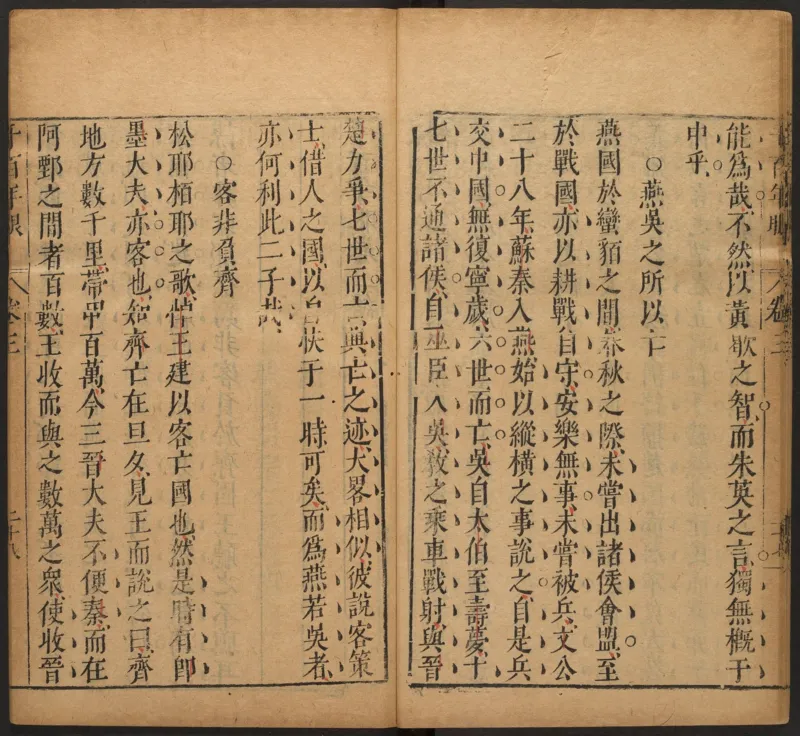 能爲哉不然以黃歇之智而朱英之言獨無概于
中乎
○燕吳之所以亡
燕國於蠻貊之間春秋之際未嘗出諸侯會盟至
於戰國亦以耕戰自守安樂無事未嘗被兵文公
二十八年蘇秦入燕始以縱橫之事說之自是兵
交中國無復寧歲六世而亡吳自太伯至壽夢十
七世不通諸侯自巫臣入吳敎之乘車戰射與晉
楚力爭七世而亡與亡之迹大畧相似彼說客策
士借人之國以自快于一時可矣而爲燕若吳者
亦何利此二子哉
○客非負齊
松耶栢耶之歌悼王建以客亡國也然是時有卽
墨大夫亦客也知齊亡在旦夕見王而說之曰齊
地方數千里帶甲百萬今三晉大夫不便秦而在
阿鄄之間者百數王收而與之數萬之衆使收晉
千百年眼 卷三 二十八